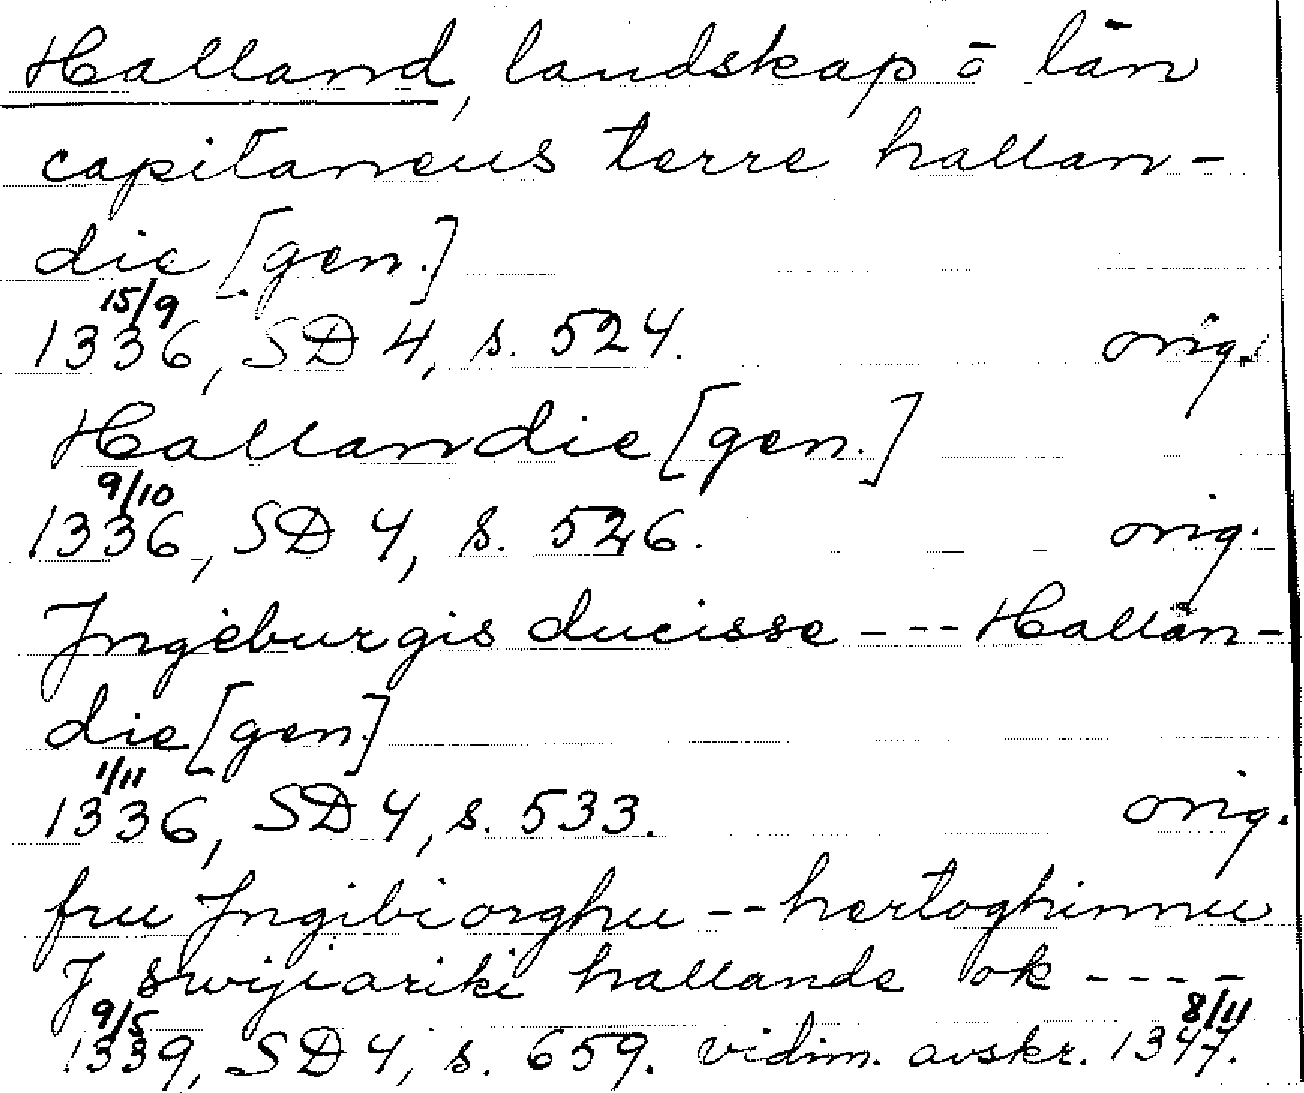 Halland, landskap o län
capitaneus terre hallan-
die [gen.]
15/9
1336, SD 4, s. 524. orig.
Hallandie [gen.]
9/10
1336, SD 4, s. 526. orig.
Ingeburgis ducisse --- Hallan-
die [gen.]
1/11
1336, SD 4, s. 533. orig.
fru Ingibiorghu -- hertoghinnu
J swijiariki hallande ok ----
9/5 8/11
1339, SD 4, s. 659. vidim. avskr. 1347.